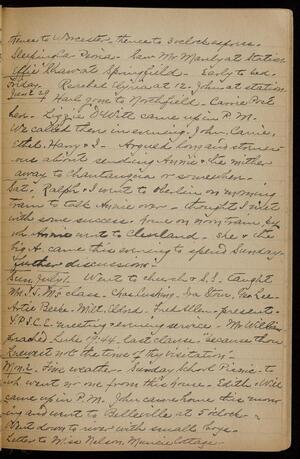 thence to Worcester, thence to 3 oclock express.
Sleepinola Peoria. Saw Mr Manly at Station
Effie Shaw at Springfield. Early to bed.
Friday. Reached Elyria at 12. John at station.
June 29 Harl gone to Northfield. Carrie
her. Lizzie DeWitt came up in P.M.
We called there in evening. John, Carrie,
Ethel, Harry & I. Argued long and strenu-
ous about sending Annie & the mother
away to Chautauqua or somewhere.
Sat. Ralph & I went to Oberlin on morning
train to talk Annie over - thought I met
with some success. Home on noon train, by
wh. Annie went to Cleveland. She & the
big A. came this evening to spend Sunday.
Further discussion.
Sun. July 1. Went to church & S.S. taught
Mr. H. M's class. Chas. Cushing,
Artie Beebe, Fred Allen - present.
Y.P.S.C.E. meeting & evening service. Mr Wilbur
preached Luke 19:44, last clause. "because thou
knewest not the time of thy visitation"
Mon. 2. Fine weather. Sunday School Picnic to
wh. went no one from this house. Edith
came up in P.M. John came home this morn-
ing and went to Belleville at 5 oclock -
Went down to river with small boys.
Letter to Miss Nelson, Muncie Cottage